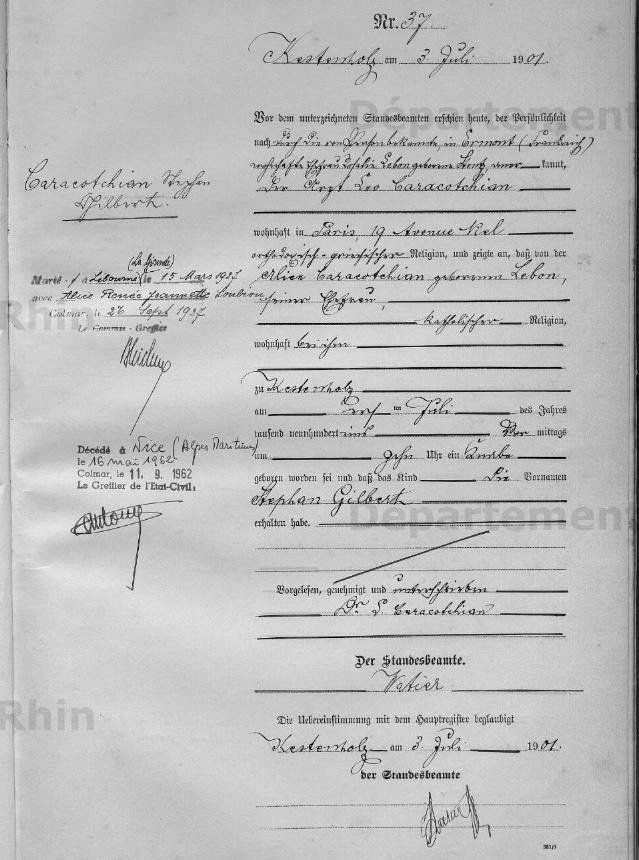 Nr. 37
Kestenholz am 3 Juli 1901.
Vor dem unterzeichneten Standesbeamten erschien heute, der Persönlichkeit
nach durch die von Person bekannte, in Ermont (Frankreich)
wohnhafte Ehefrau Lebon geborene kannt,
Der Arzt Leo Caracotchian
wohnhaft in Paris, 19 Avenue Niel
orthodoxisch-griechischer Religion, und zeigte an, daß von der
Alice Caracotchian geborenen Lebon,
seiner Ehefrau,
katholischer Religion,
wohnhaft bei ihm
zu Kestenholz
am ten Juli des Jahres
tausend neunhundert eins Vor mittags
um zehn Uhr ein Knabe
geboren worden sei und daß das Kind die Vornamen
Stephan Gilbert
erhalten habe.
Vorgelesen, genehmigt und unterschrieben
Dr. L. Caracotchian
Der Standesbeamte.
Vatier
Die Uebereinstimmung mit dem Hauptregister beglaubigt
Kestenholz am 3. Juli 1901.
der Standesbeamte
Caracotchian Stephan
Gilbert.
(La Gironde)
Marié à Libourne le 15 Mars 1927
avec Alice Renée Jeannette Loubion
Colmar, le 26 Sept 1927
Le Commis-Greffier
Décédé à Nice (Alpes Maritimes)
le 16 mai 1962
Colmar, le 11. 9. 1962
Le Greffier de l'Etat-Civil:
Département
Rhin
Département
Rhin